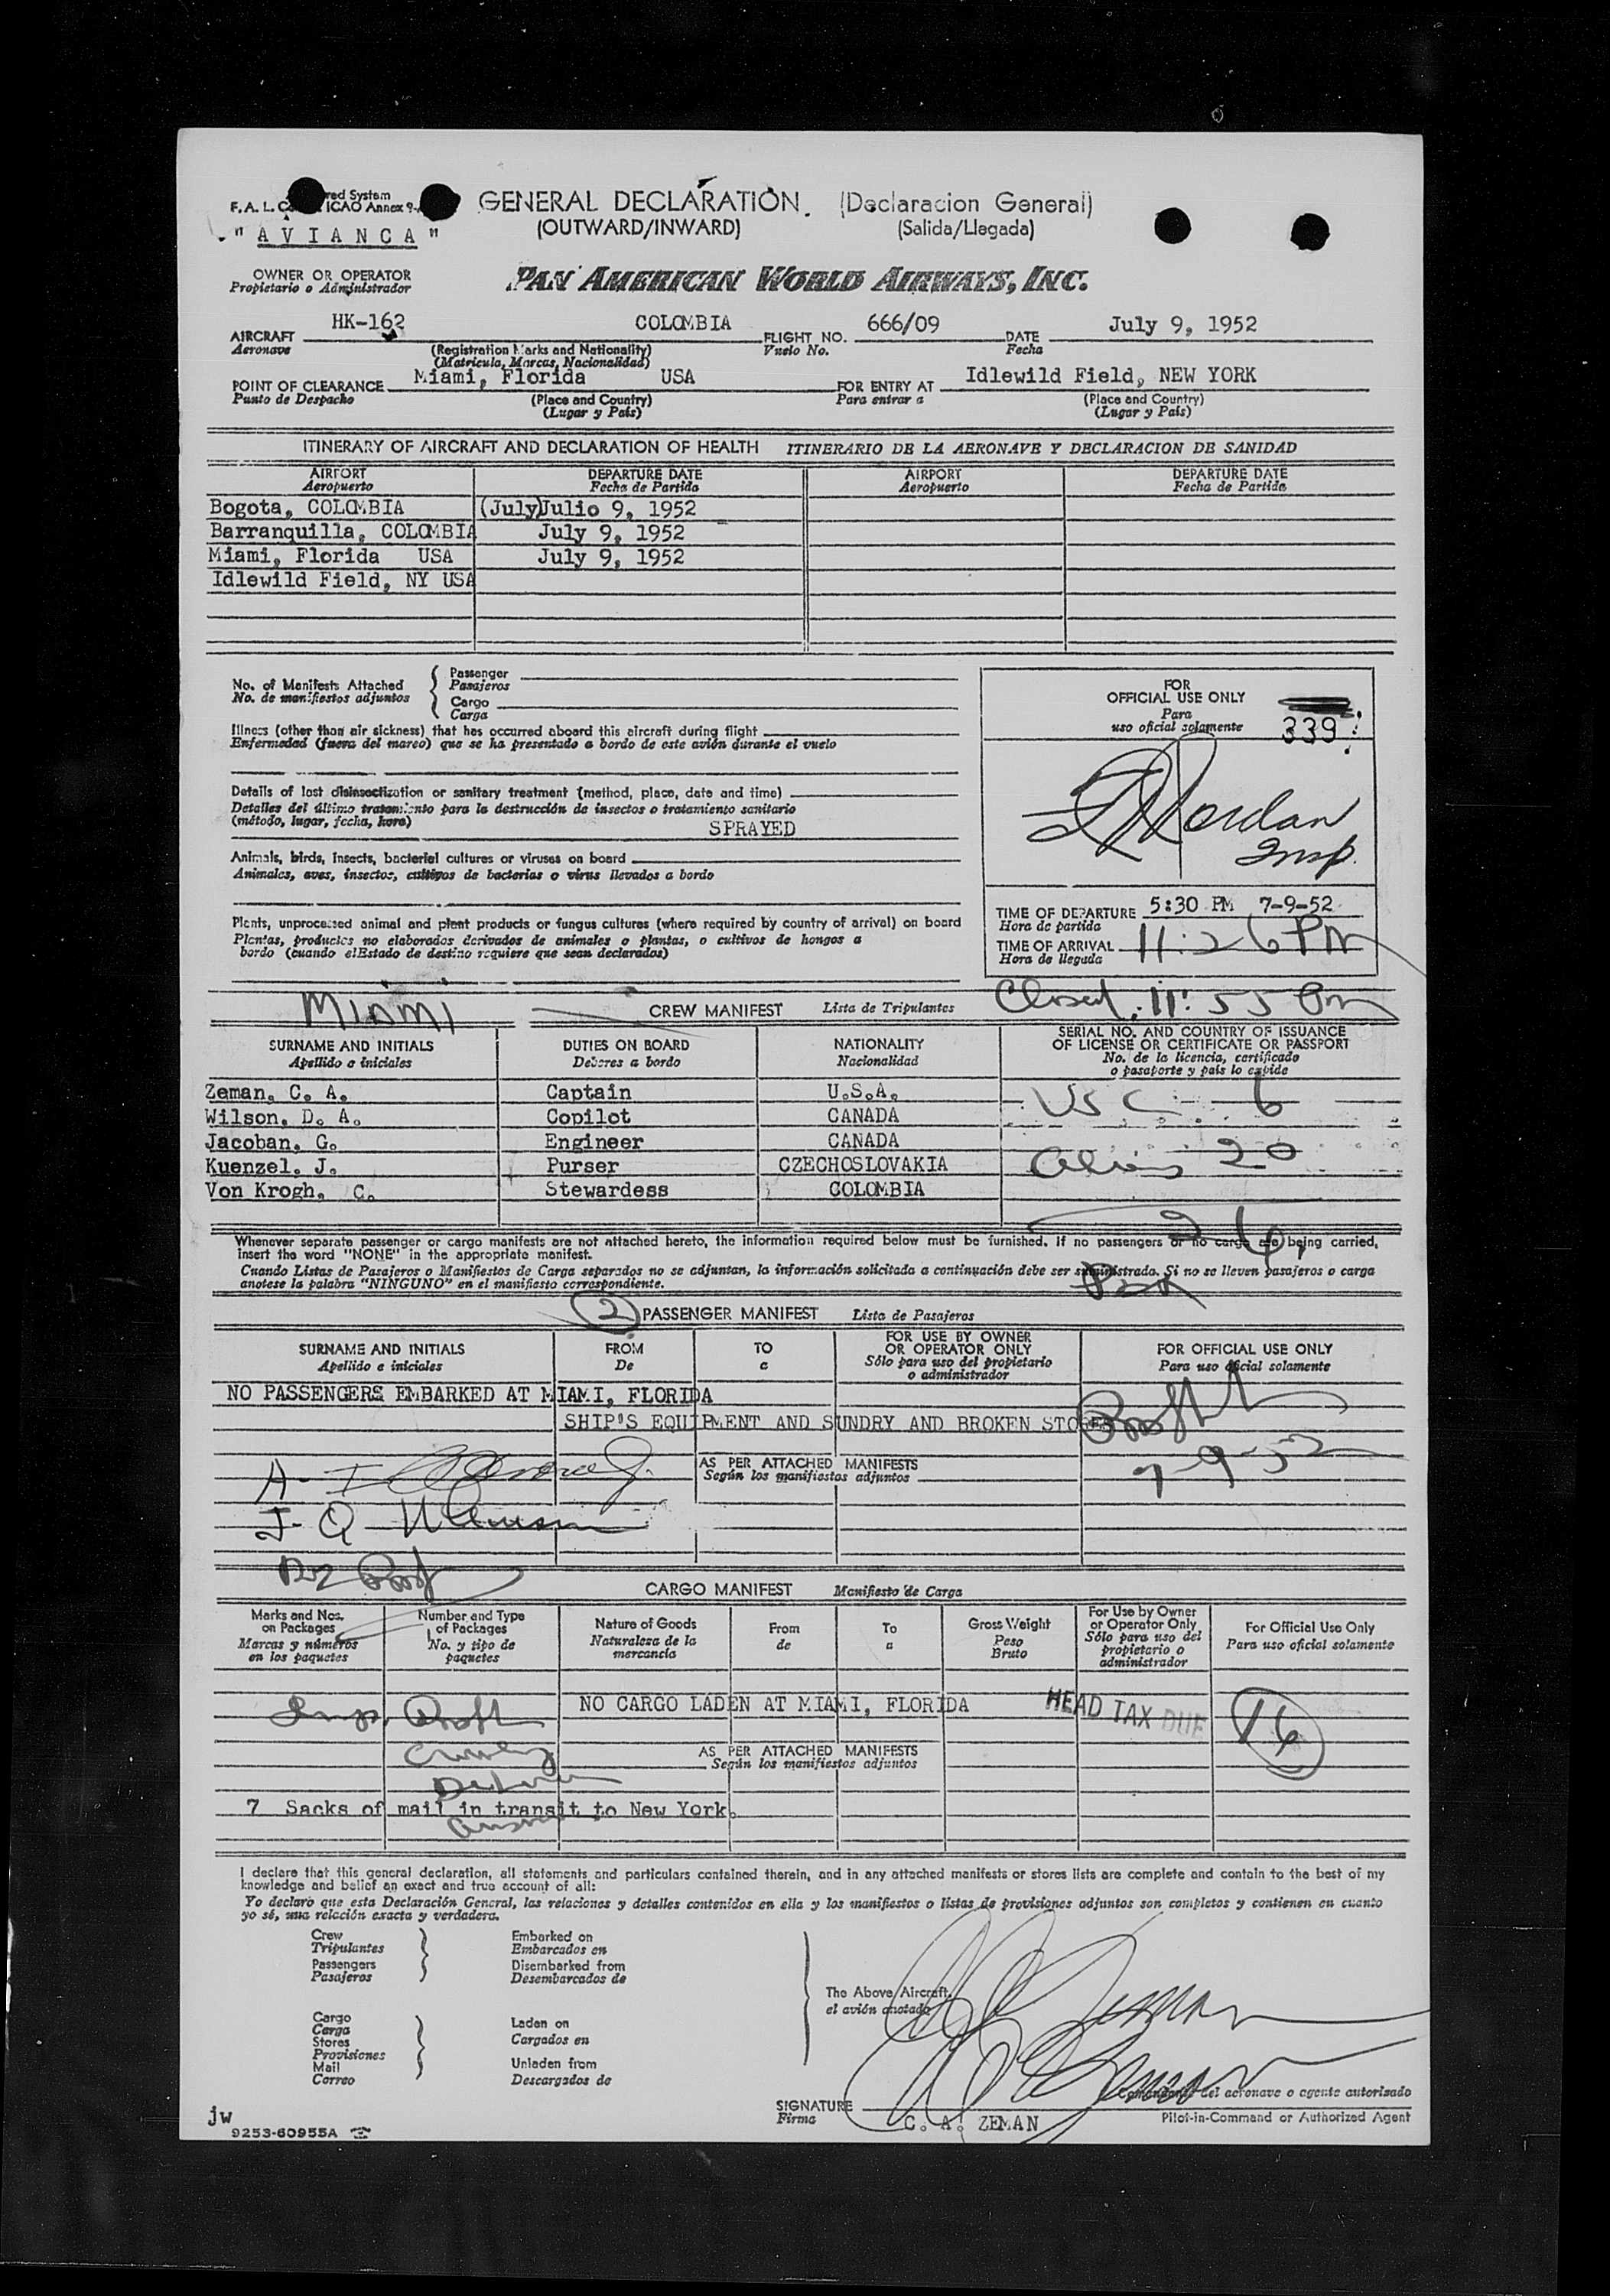 red System
F. A. L. C ICAO Annex 9-
GENERAL DECLARATION. (Declaracion General)
(OUTWARD/INWARD) (Salida/Llegada)
"AVIANCA"
OWNER OR OPERATOR
Propietario o Administrador
PAN AMERICAN WORLD AIRWAYS, INC.
AIRCRAFT HK-162 COLOMBIA FLIGHT NO. 666/09 DATE July 9, 1952
Aeronave (Registration Marks and Nationality) Vuelo No. Fecha
(Matricula, Marcas, Nacionalidad)
POINT OF CLEARANCE Miami, Florida USA FOR ENTRY AT Idlewild Field, NEW YORK
Punto de Despacho (Place and Country) Para entrar a (Place and Country)
(Lugar y País) (Lugar y País)
ITINERARY OF AIRCRAFT AND DECLARATION OF HEALTH ITINERARIO DE LA AERONAVE Y DECLARACION DE SANIDAD
AIRPORT DEPARTURE DATE AIRPORT DEPARTURE DATE
Aeropuerto Fecha de Partida Aeropuerto Fecha de Partida
Bogota, COLOMBIA (July)Julio 9, 1952
Barranquilla, COLOMBIA July 9, 1952
Miami, Florida USA July 9, 1952
Idlewild Field, NY USA
No. of Manifests Attached
No. de manifiestos adjuntos
Passenger
Pasajeros
Cargo
Carga
Illness (other than air sickness) that has occurred aboard this aircraft during flight
Enfermedad (fuera del mareo) que se ha presentado a bordo de este avión durante el vuelo
Details of last disinsectization or sanitary treatment (method, place, date and time)
Detalles del último tratamiento para la destrucción de insectos o tratamiento sanitario
(método, lugar, fecha, hora)
SPRAYED
Animals, birds, insects, bacterial cultures or viruses on board
Animales, aves, insectos, cultivos de bacterias o virus llevados a bordo
Plants, unprocessed animal and plant products or fungus cultures (where required by country of arrival) on board
Plantas, productos no elaborados derivados de animales o plantas, o cultivos de hongos a
bordo (cuando elEstado de destino requiere que sean declarados)
FOR
OFFICIAL USE ONLY
Para
uso oficial solamente
339
Insp.
TIME OF DEPARTURE 5:30 PM 7-9-52
Hora de partida
TIME OF ARRIVAL 11:26 PM
Hora de llegada
MIAMI CREW MANIFEST Lista de Tripulantes Closed 11:55 Pm
SURNAME AND INITIALS DUTIES ON BOARD NATIONALITY SERIAL NO. AND COUNTRY OF ISSUANCE
OF LICENSE OR CERTIFICATE OR PASSPORT
Apellido e iniciales Deberes a bordo Nacionalidad No. de la licencia, certificado
o pasaporte y país lo expide
Zeman, C. A. Captain U.S.A. USC 6
Wilson, D. A. Copilot CANADA
Jacoban, G. Engineer CANADA
Kuenzel. J. Purser CZECHOSLOVAKIA Aliens 20
Von Krogh, C. Stewardess COLOMBIA
26
Whenever separate passenger or cargo manifests are not attached hereto, the information required below must be furnished. If no passengers or no cargo are being carried,
insert the word "NONE" in the appropriate manifest.
Cuando Listas de Pasajeros o Manifiestos de Carga separados no se adjuntan, la información solicitada a continuación debe ser suministrada. Si no se lleven pasajeros o carga
anotese la palabra "NINGUNO" en el manifiesto correspondiente.
2 PASSENGER MANIFEST Lista de Pasajeros
SURNAME AND INITIALS FROM TO FOR USE BY OWNER
OR OPERATOR ONLY FOR OFFICIAL USE ONLY
Apellido e iniciales De a Sólo para uso del propietario
o administrador Para uso oficial solamente
NO PASSENGERS EMBARKED AT MIAMI, FLORIDA
SHIP'S EQUIPMENT AND SUNDRY AND BROKEN STORES
AS PER ATTACHED MANIFESTS
Según los manifiestos adjuntos
7-9-52
CARGO MANIFEST Manifiesto de Carga
Marks and Nos.
on Packages
Marcas y números
en los paquetes
Number and Type
of Packages
No. y tipo de
paquetes
Nature of Goods
Naturaleza de la
mercancía
From
de
To
a
Gross Weight
Peso
Bruto
For Use by Owner
or Operator Only
Sólo para uso del
propietario o
administrador
For Official Use Only
Para uso oficial solamente
NO CARGO LADEN AT MIAMI, FLORIDA
HEAD TAX DUE 16
AS PER ATTACHED MANIFESTS
Según los manifiestos adjuntos
7 Sacks of mail in transit to New York.
I declare that this general declaration, all statements and particulars contained therein, and in any attached manifests or stores lists are complete and contain to the best of my
knowledge and belief an exact and true account of all:
Yo declaro que esta Declaración General, las relaciones y detalles contenidos en ella y los manifiestos o listas de provisiones adjuntos son completos y contienen en cuanto
yo sé, una relación exacta y verdadera.
Crew
Tripulantes
Passengers
Pasajeros
Embarked on
Embarcados en
Disembarked from
Desembarcados de
Cargo
Carga
Stores
Provisiones
Mail
Correo
Laden on
Cargados en
Unladen from
Descargados de
The Above Aircraft
el avión anotado
Comandante del aeronave o agente autorizado
SIGNATURE
Firma
C. A. ZEMAN
Pilot-in-Command or Authorized Agent
jw
9253-60955A